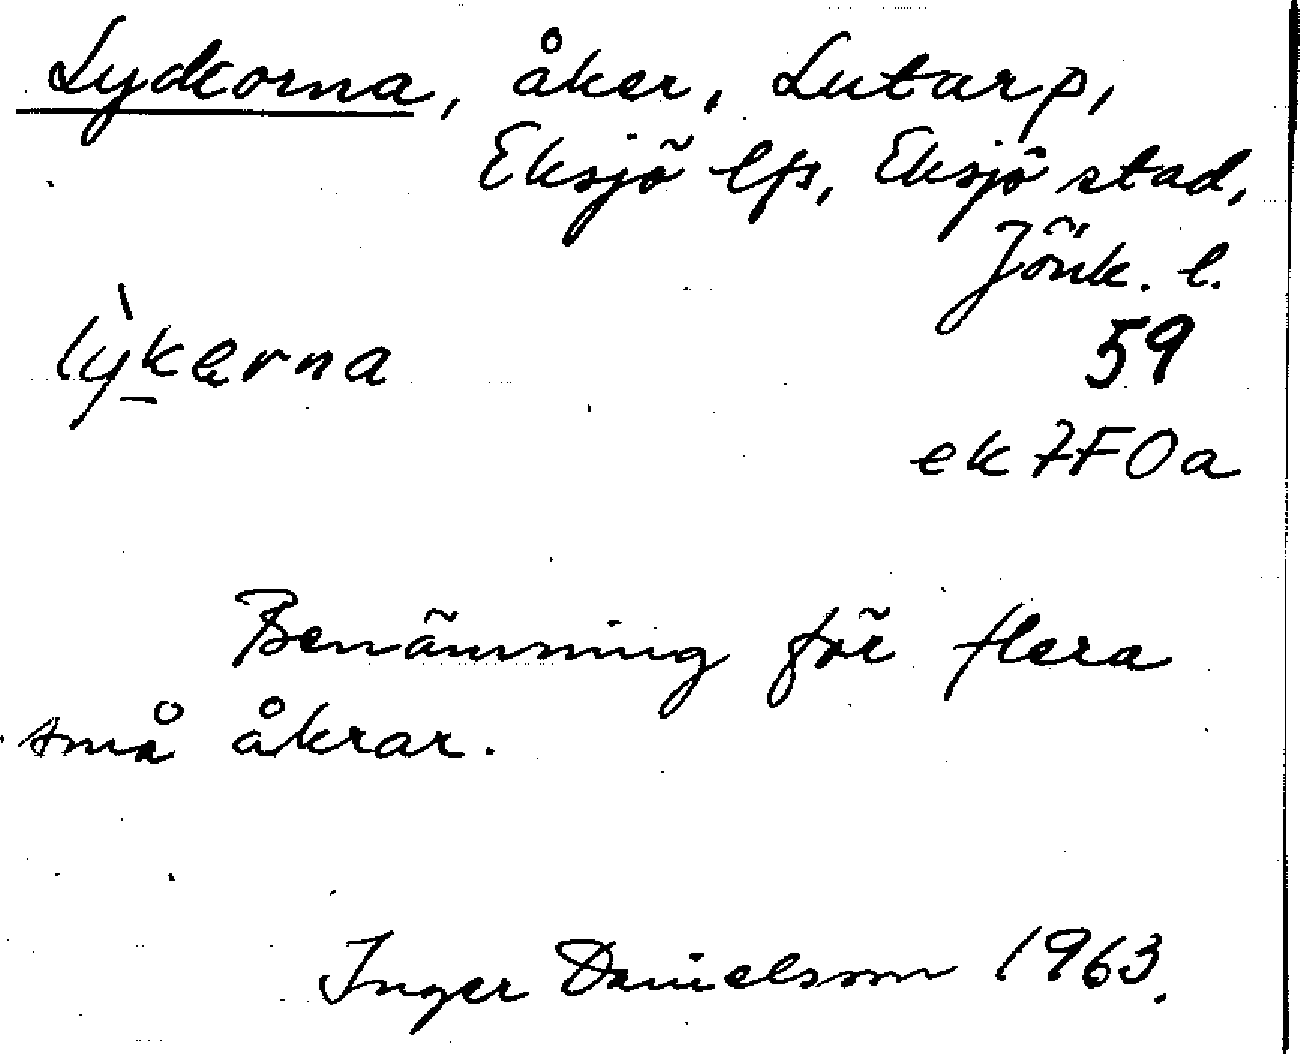 Lyckorna, åker, Lutarp,
Eksjö lfs, Eksjö stad,
Jönk. l.
lỳkerna
59
ek 7F0a
Benämning för flera
små åkrar.
Inger Danielsson 1963.